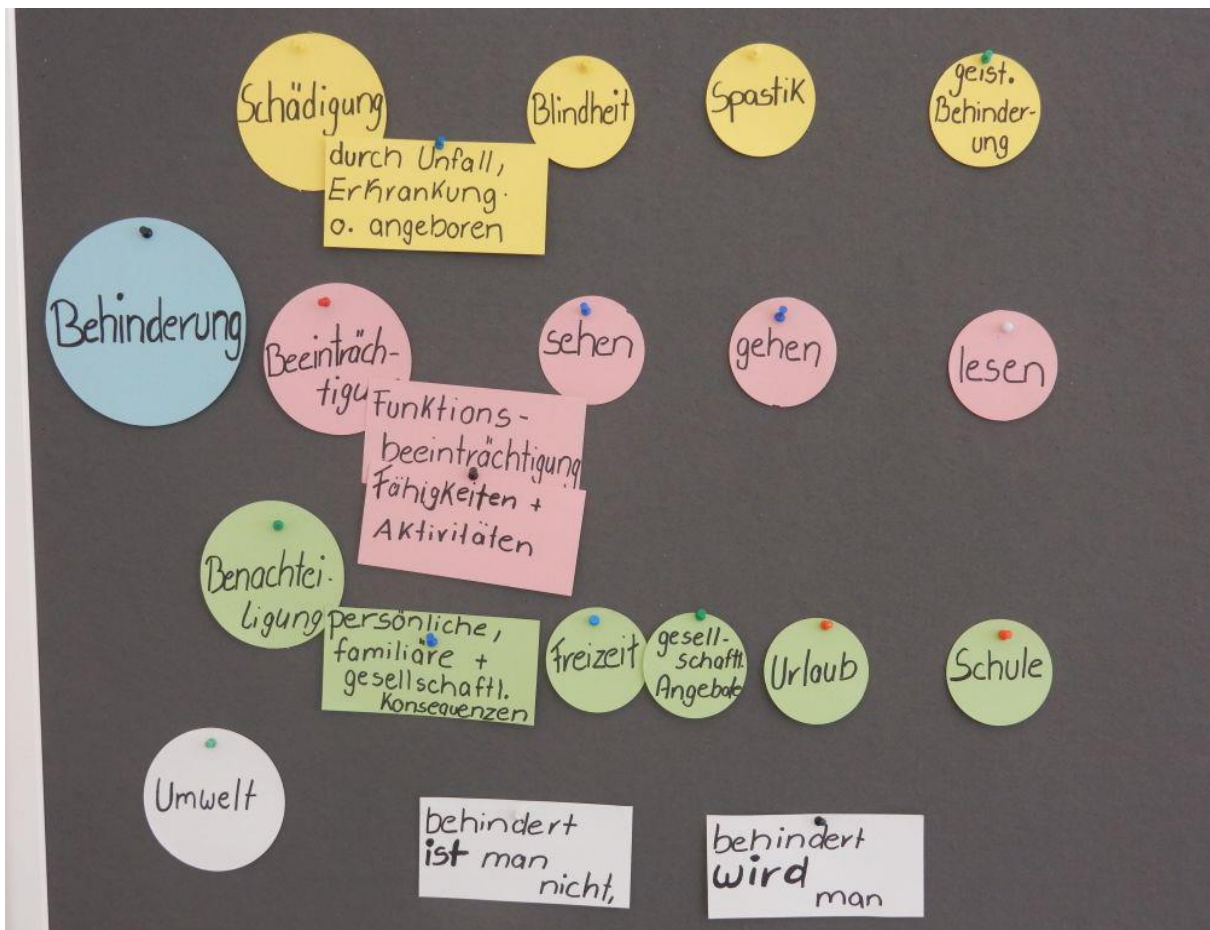 Schädigung
durch Unfall,
Erkrankung.
o. angeboren
Blindheit
Spastik
geist.
Behinder-
ung
Behinderung
Beeinträch-
tigu
Funktions-
beeinträchtigung
Fähigkeiten +
Aktivitäten
sehen
gehen
lesen
Benachtei-
ligung
persönliche,
familiäre +
gesellschaftl.
Konsequenzen
Freizeit
gesell-
schaftl.
Angebote
Urlaub
Schule
Umwelt
behindert
ist man
nicht,
behindert
wird
man